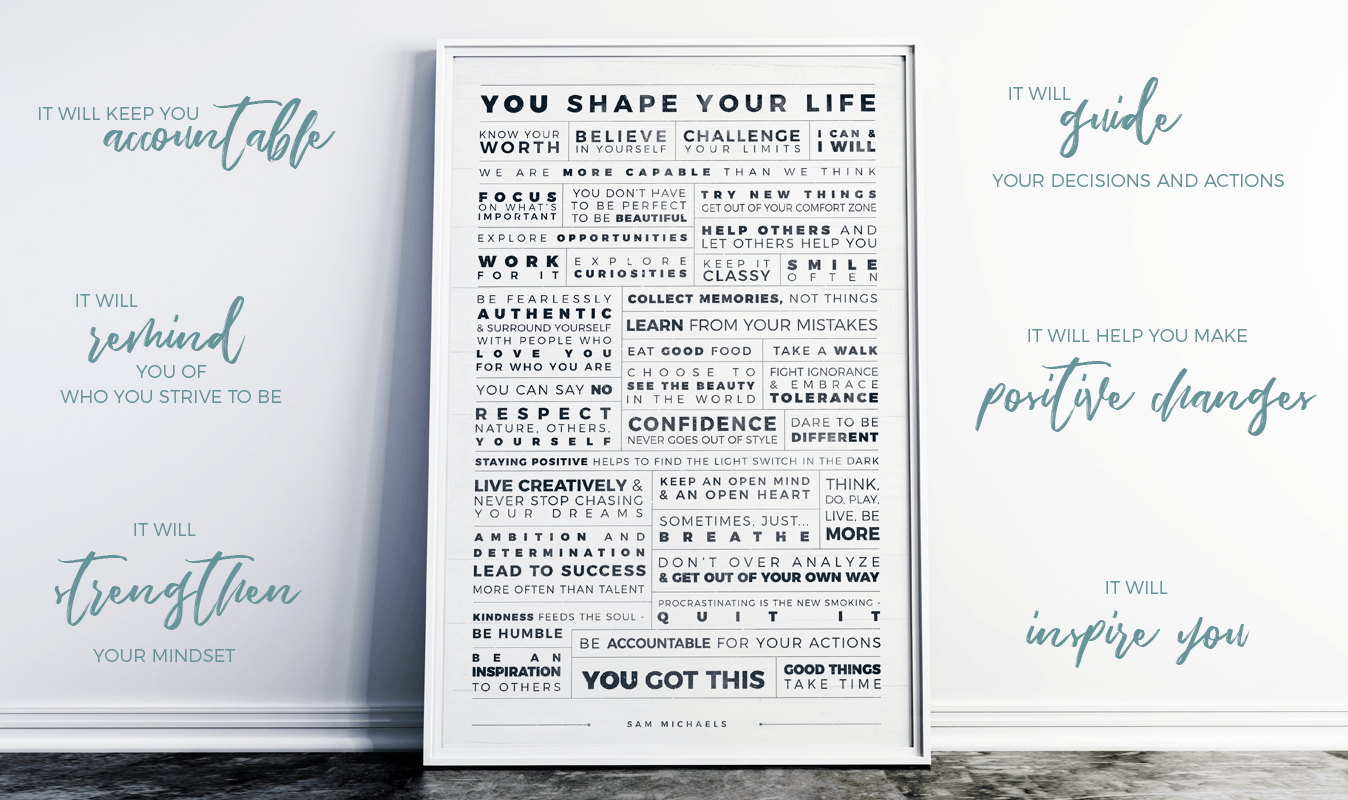 IT WILL KEEP YOU
accountable
IT WILL
remind
YOU OF
WHO YOU STRIVE TO BE
IT WILL
strengthen
YOUR MINDSET
YOU SHAPE YOUR LIFE
KNOW YOUR
WORTH
BELIEVE
IN YOURSELF
CHALLENGE
YOUR LIMITS
I CAN &
I WILL
WE ARE MORE CAPABLE THAN WE THINK
FOCUS
ON WHAT'S
IMPORTANT
YOU DON'T HAVE
TO BE PERFECT
TO BE BEAUTIFUL
TRY NEW THINGS
GET OUT OF YOUR COMFORT ZONE
EXPLORE OPPORTUNITIES
HELP OTHERS AND
LET OTHERS HELP YOU
WORK
FOR IT
EXPLORE
CURIOSITIES
KEEP IT
CLASSY
SMILE
OFTEN
BE FEARLESSLY
AUTHENTIC
& SURROUND YOURSELF
WITH PEOPLE WHO
LOVE YOU
FOR WHO YOU ARE
COLLECT MEMORIES, NOT THINGS
LEARN FROM YOUR MISTAKES
EAT GOOD FOOD
TAKE A WALK
YOU CAN SAY NO
CHOOSE TO
SEE THE BEAUTY
IN THE WORLD
FIGHT IGNORANCE
& EMBRACE
TOLERANCE
RESPECT
NATURE, OTHERS,
YOURSELF
CONFIDENCE
NEVER GOES OUT OF STYLE
DARE TO BE
DIFFERENT
STAYING POSITIVE HELPS TO FIND THE LIGHT SWITCH IN THE DARK
LIVE CREATIVELY &
NEVER STOP CHASING
YOUR DREAMS
KEEP AN OPEN MIND
& AN OPEN HEART
THINK,
DO, PLAY,
LIVE, BE
MORE
SOMETIMES, JUST...
BREATHE
AMBITION AND
DETERMINATION
LEAD TO SUCCESS
MORE OFTEN THAN TALENT
DON'T OVER ANALYZE
& GET OUT OF YOUR OWN WAY
PROCRASTINATING IS THE NEW SMOKING -
QUIT IT
KINDNESS FEEDS THE SOUL -
BE HUMBLE
BE ACCOUNTABLE FOR YOUR ACTIONS
BE AN
INSPIRATION
TO OTHERS
YOU GOT THIS
GOOD THINGS
TAKE TIME
SAM MICHAELS
IT WILL
guide
YOUR DECISIONS AND ACTIONS
IT WILL HELP YOU MAKE
positive changes
IT WILL
inspire you